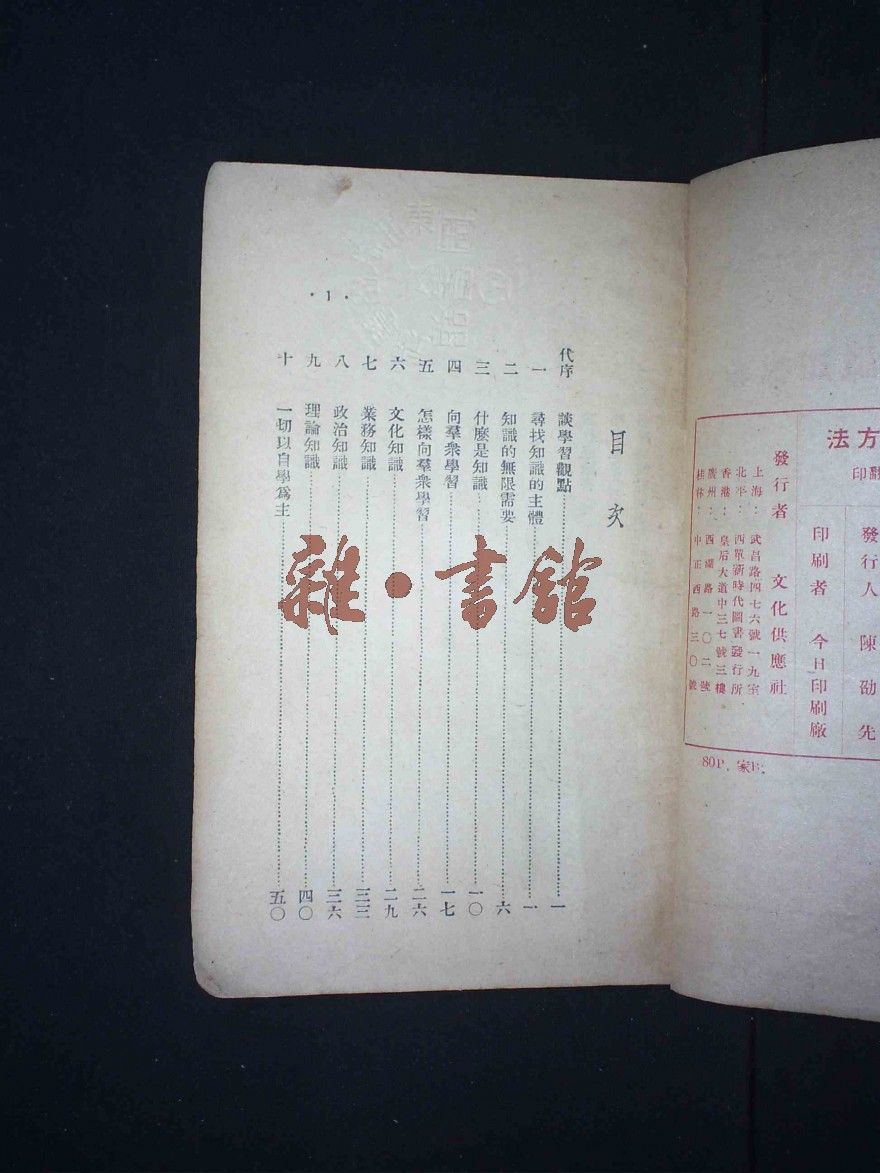 目次
代序 談學習觀點 一
一 尋找知識的主體 一
二 知識的無限需要 六
三 什麼是知識 一〇
四 向羣衆學習 一七
五 怎樣向羣衆學習 二六
六 文化知識 二九
七 業務知識 三三
八 政治知識 三六
九 理論知識 四〇
十 一切以自學爲主 五〇
·1·
雜·書館
方法
翻印
發行人 陳劭先
印刷者 今日印刷廠
發行者 文化供應社
上海：武昌路四七六號一九室
北平：西單新時代圖書發行所
香港：皇后大道中三七號三樓
廣州：西湖路一〇二號
桂林：中正西路三〇號
80P. 家